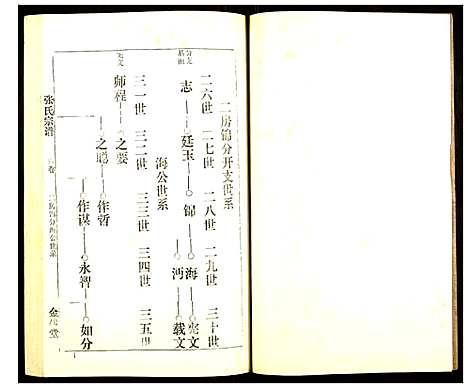 二房锦分开支世系
二六世 二七世 二八世 二九世 三十世
志 廷玉 锦 海 宪文
沔 载文
海公世系
三一世 三二世 三三世 三四世 三五世
师程 之要 作哲
之聪 作谋 永智 如分
张氏宗谱
卷